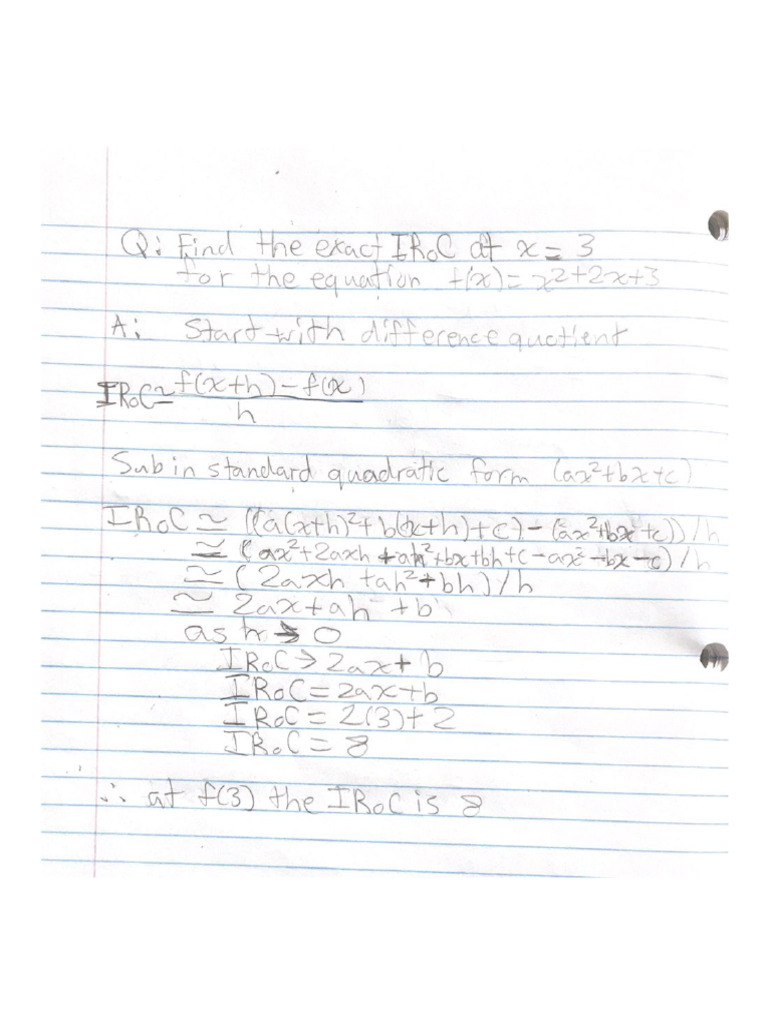 Q: Find the exact IRoC at x = 3
for the equation f(x) = x²+2x+3
A: Start with difference quotient
IRoC ≃ f(x+h) - f(x)
h
Sub in standard quadratic form (ax²+bx+c)
IRoC ≃ ((a(x+h)²+b(x+h)+c) - (ax²+bx+c))/h
≃ (ax²+2axh+ah²+bx+bh+c-ax²-bx-c)/h
≃ (2axh+ah²+bh)/h
≃ 2ax+ah+b
as h → 0
IRoC → 2ax+b
IRoC = 2ax+b
IRoC = 2(3)+2
IRoC = 8
∴ at f(3) the IRoC is 8